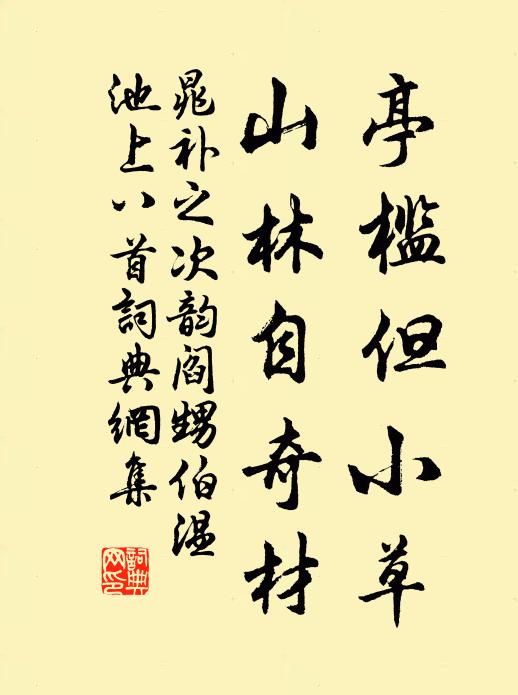 亭檻但小草
山林自奇材
晁补之次韵阎甥伯温
池上八首詞典網集
詞典网印